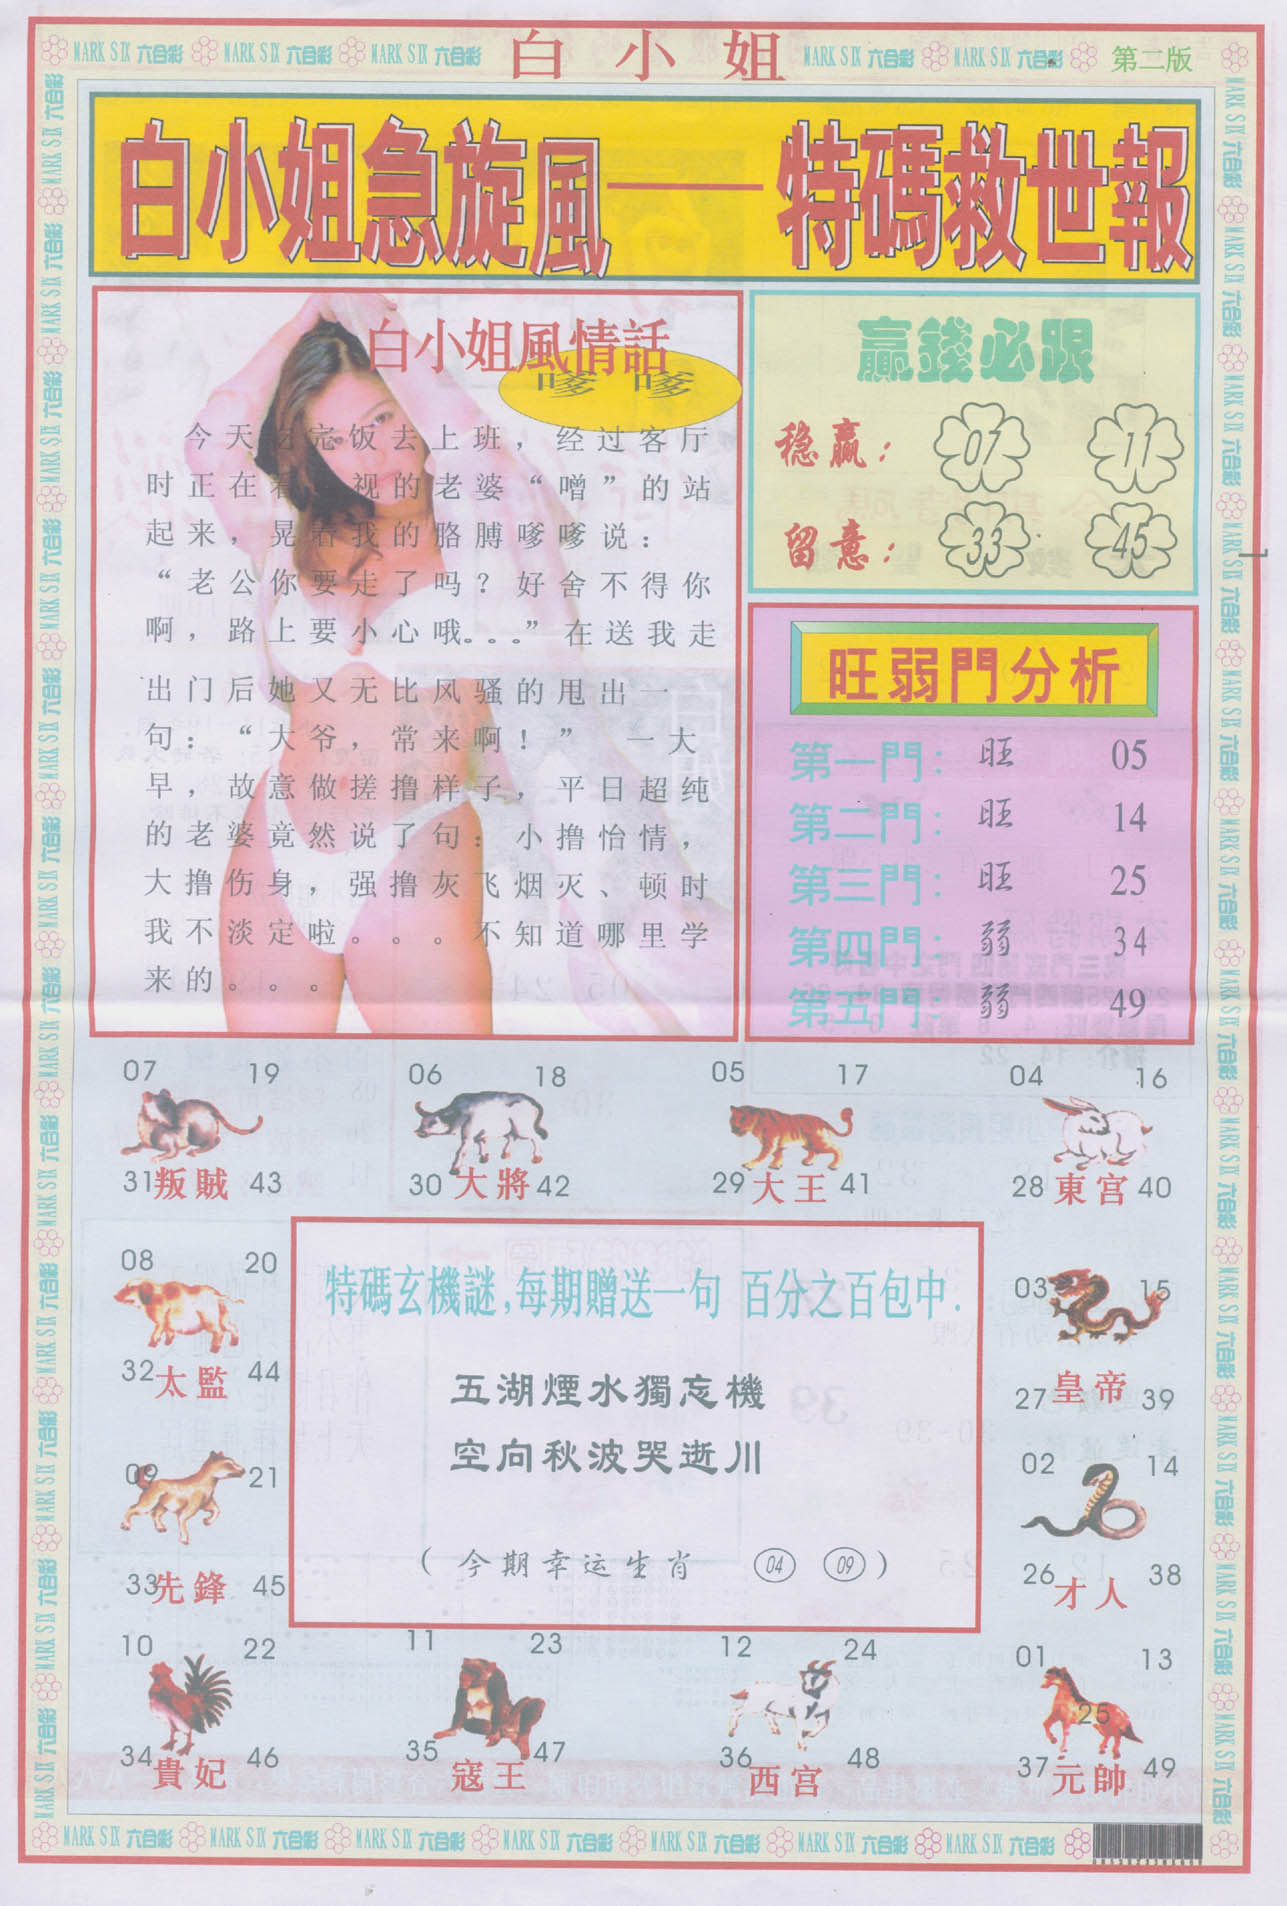 MARK SIX 六合彩 MARK SIX 六合彩 MARK SIX 六合彩 白小姐 MARK SIX 六合彩 MARK SIX 六合彩 第二版
白小姐急旋風——特碼救世報
白小姐風情話
嗲 嗲
今天吃完饭去上班，经过客厅
时正在看电视的老婆“噌”的站
起来，晃着我的胳膊嗲嗲说：
“老公你要走了吗？好舍不得你
啊，路上要小心哦。。。”在送我走
出门后她又无比风骚的甩出一
句：“大爷，常来啊！” 一大
早，故意做搓撸样子，平日超纯
的老婆竟然说了句：小撸怡情，
大撸伤身，强撸灰飞烟灭、顿时
我不淡定啦。。。不知道哪里学
来的。。。
贏錢必跟
稳赢： 07 11
留意： 33 45
旺弱門分析
第一門： 旺 05
第二門： 旺 14
第三門： 旺 25
第四門： 弱 34
第五門： 弱 49
07 19
31 叛賊 43
06 18
30 大將 42
05 17
29 大王 41
04 16
28 東宫 40
08 20
32 太監 44
03 15
27 皇帝 39
09 21
33 先鋒 45
02 14
26 才人 38
特碼玄機謎,每期贈送一句 百分之百包中.
五湖煙水獨忘機
空向秋波哭逝川
（今期幸运生肖 04 09）
10 22
34 貴妃 46
11 23
35 寇王 47
12 24
36 西宫 48
01 13
25
37 元帥 49
MARK SIX 六合彩 MARK SIX 六合彩 MARK SIX 六合彩 MARK SIX 六合彩 MARK SIX 六合彩 MARK SIX 六合彩 MARK SIX 六合彩